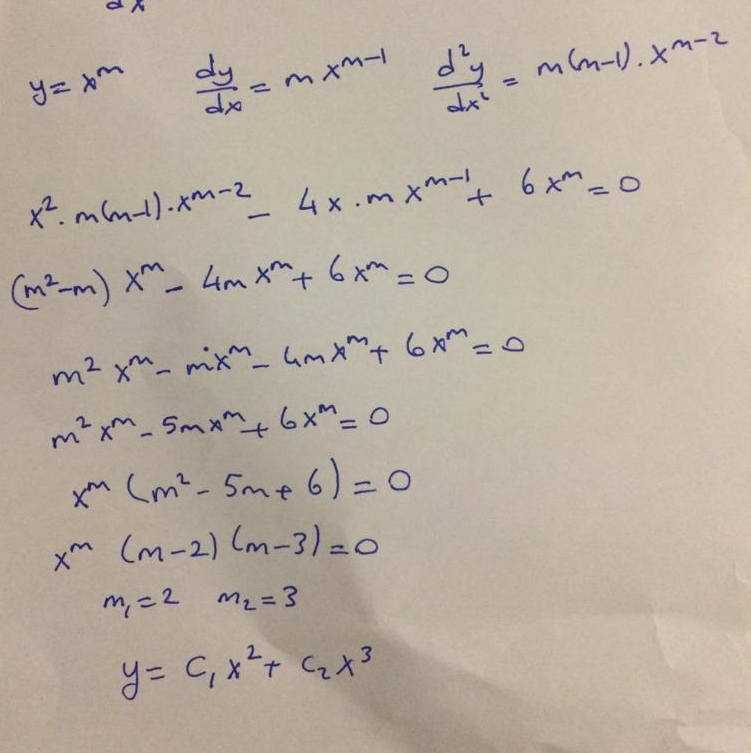 dx
y = x^m   dy/dx = m x^{m-1}   d²y/dx² = m(m-1).x^{m-2}
x². m(m-1).x^{m-2} - 4x . m x^{m-1} + 6x^m = 0
(m²-m) x^m - 4m x^m + 6x^m = 0
m² x^m - m x^m - 4m x^m + 6x^m = 0
m² x^m - 5m x^m + 6x^m = 0
x^m (m² - 5m + 6) = 0
x^m (m-2) (m-3) = 0
m₁ = 2   m₂ = 3
y = C₁ x² + C₂ x³